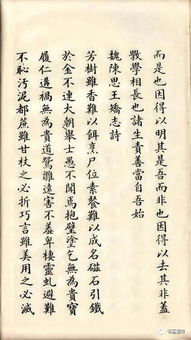 而是也因得以明其是吾而非也因得以去其非蓋
教學相長也諸生責善當自吾始
魏陳思王矯志詩
芳樹雖香難以餌烹尸位素餐難以成名磁石引鐵
於金不連大朝舉士愚不聞焉抱璧塗乞無為貴寶
履仁遘禍無為貴道鴛雛遠害不羞卑棲靈虬避難
不恥污泥都蔗雖甘杖之必折巧言雖美用之必滅